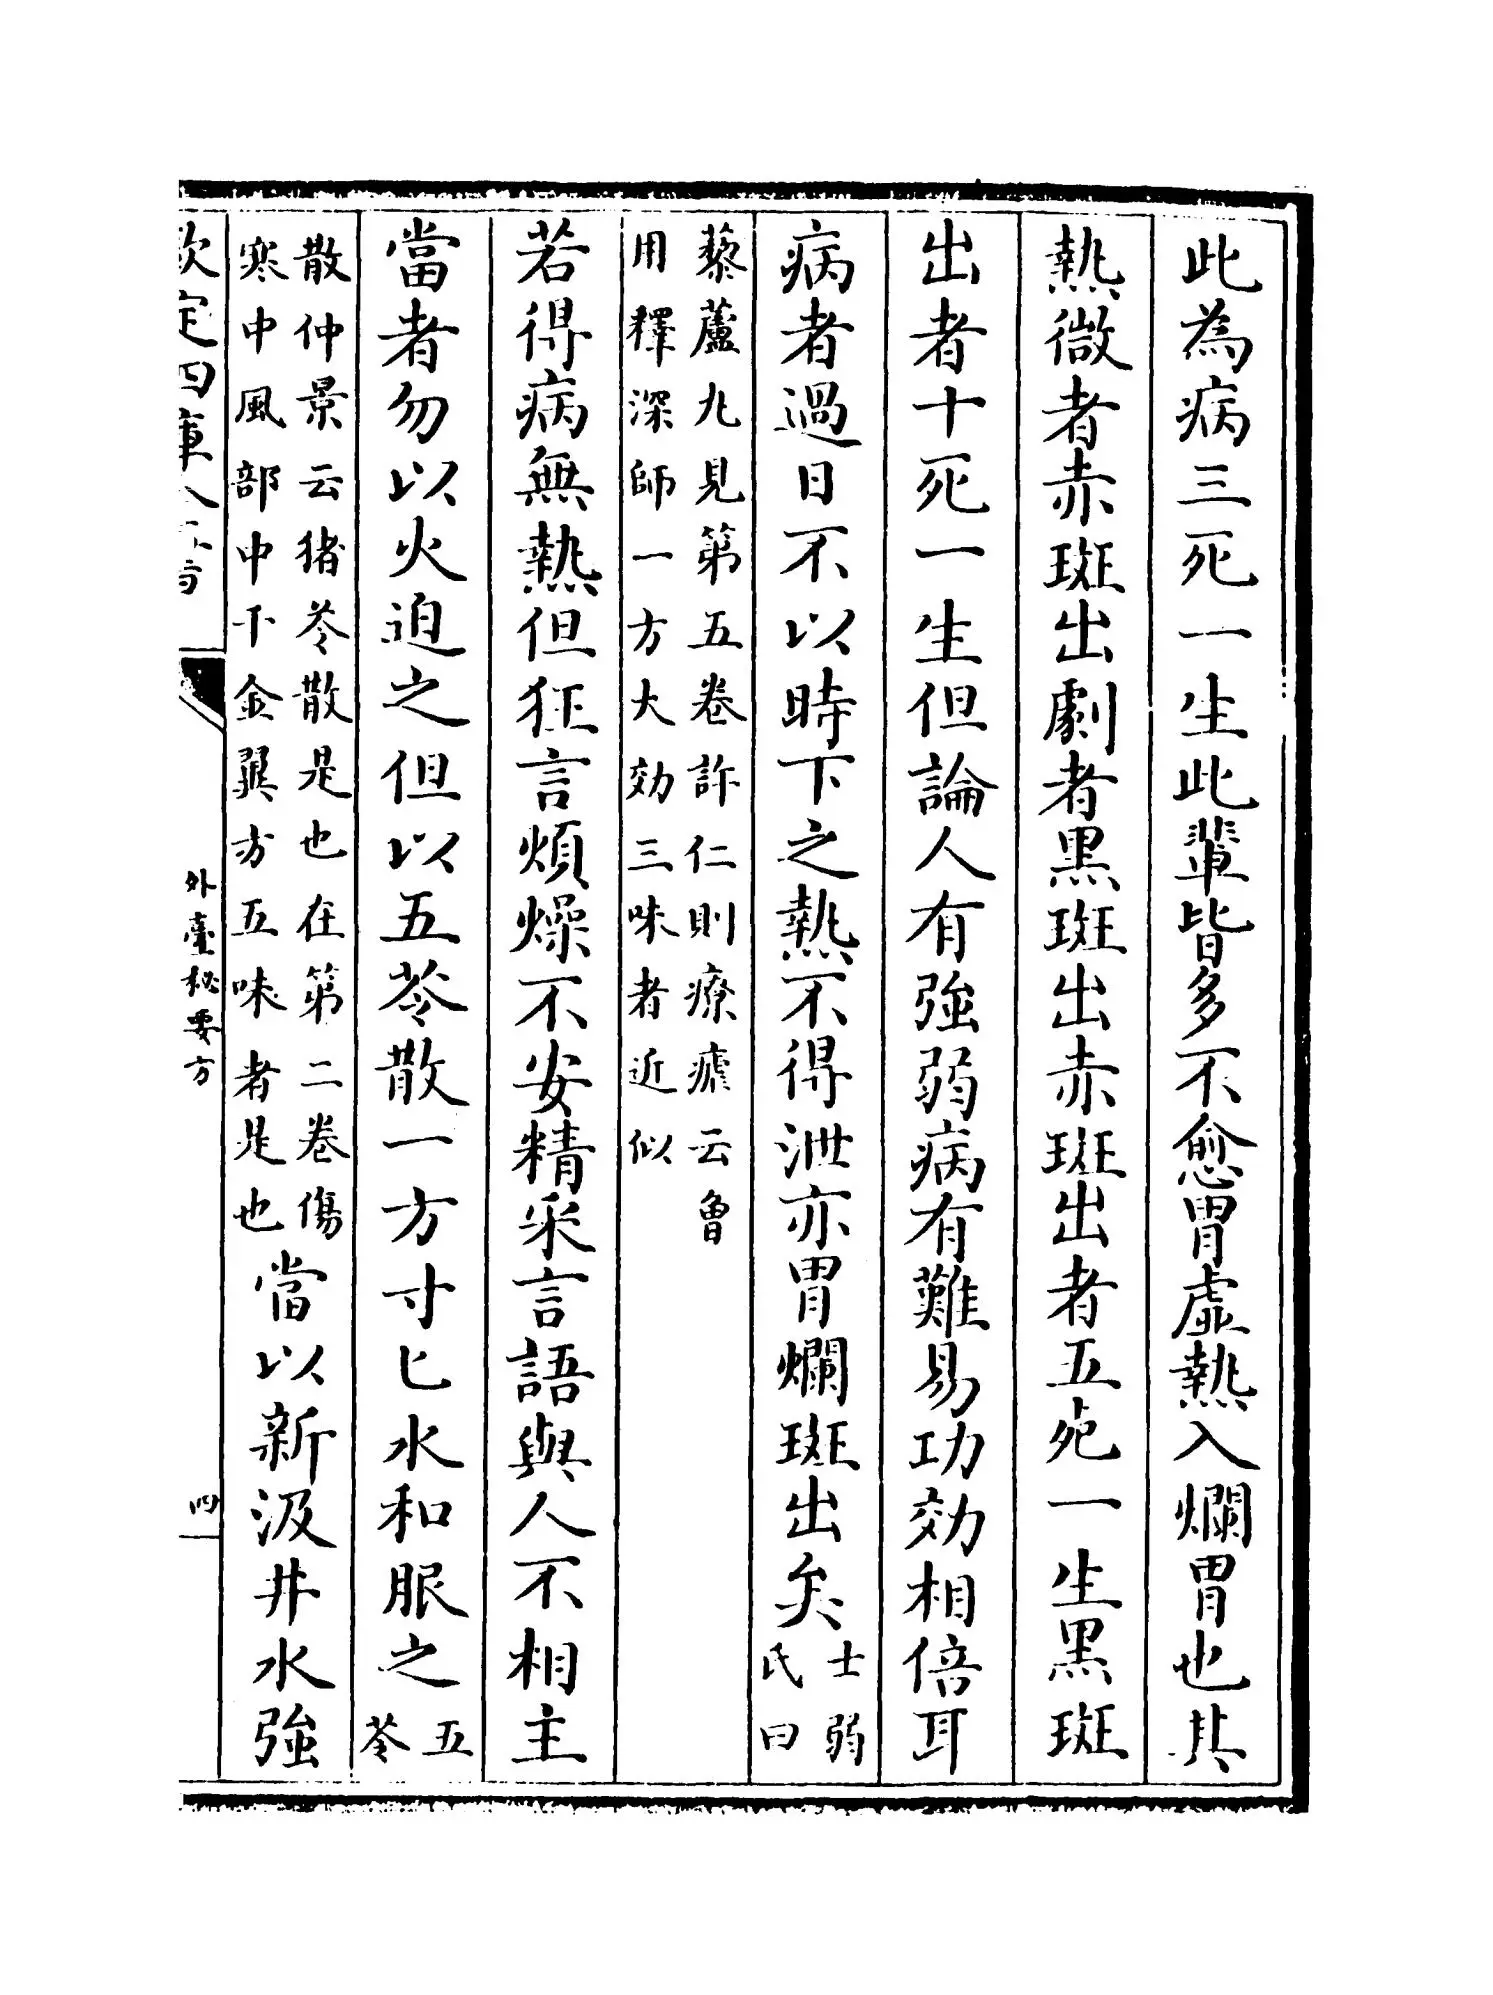 此為病三死一生此輩皆多不愈胃虛熱入爛胃也其
熱微者赤斑出劇者黑斑出赤斑出者五死一生黑斑
出者十死一生但論人有強弱病有難易功效相倍耳
病者過日不以時下之熱不得泄亦胃爛斑出矣士弱
氏曰
藜蘆丸見第五卷許仁則療瘧云曾
用釋深師一方大効三味者近似
若得病無熱但狂言煩燥不安精采言語與人不相主
當者勿以火迫之但以五苓散一方寸匕水和服之五
苓
散仲景云猪苓散是也在第二卷傷
寒中風部中千金翼方五味者是也當以新汲井水強
欽定四庫全書
外臺秘要方
四